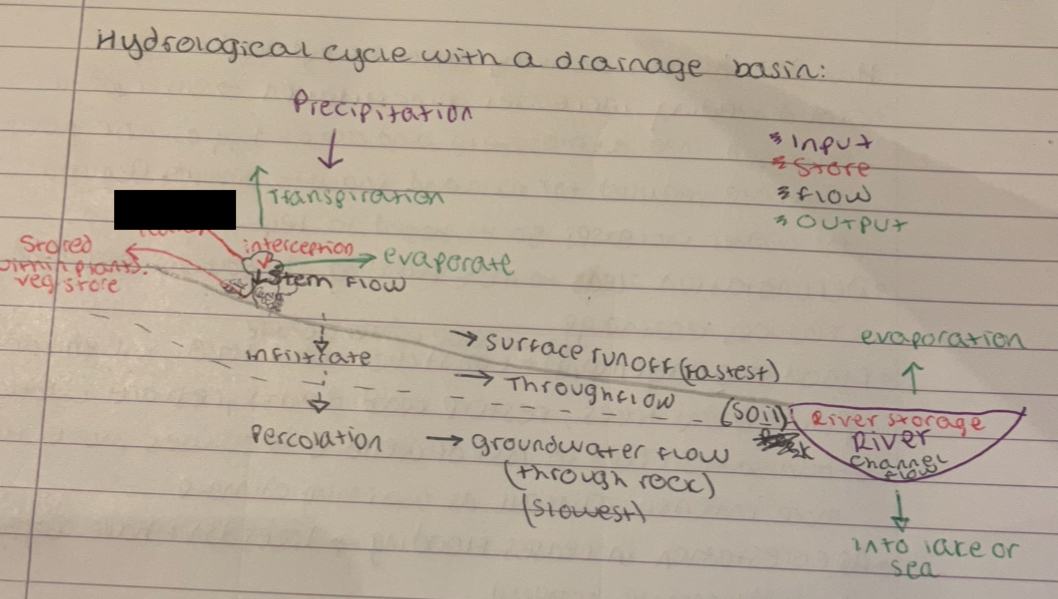 Hydrological cycle with a drainage basin:
Precipitation
* Input
* Store
* flow
* Output
Transpiration
interception
Stored
in plants.
veg store
evaporate
Stem flow
infiltrate
→ surface runoff (fastest)
→ Throughflow
(soil)
evaporation
River storage
River
channel
flow
Percolation
→ groundwater flow
(through rock)
(slowest)
into lake or
sea